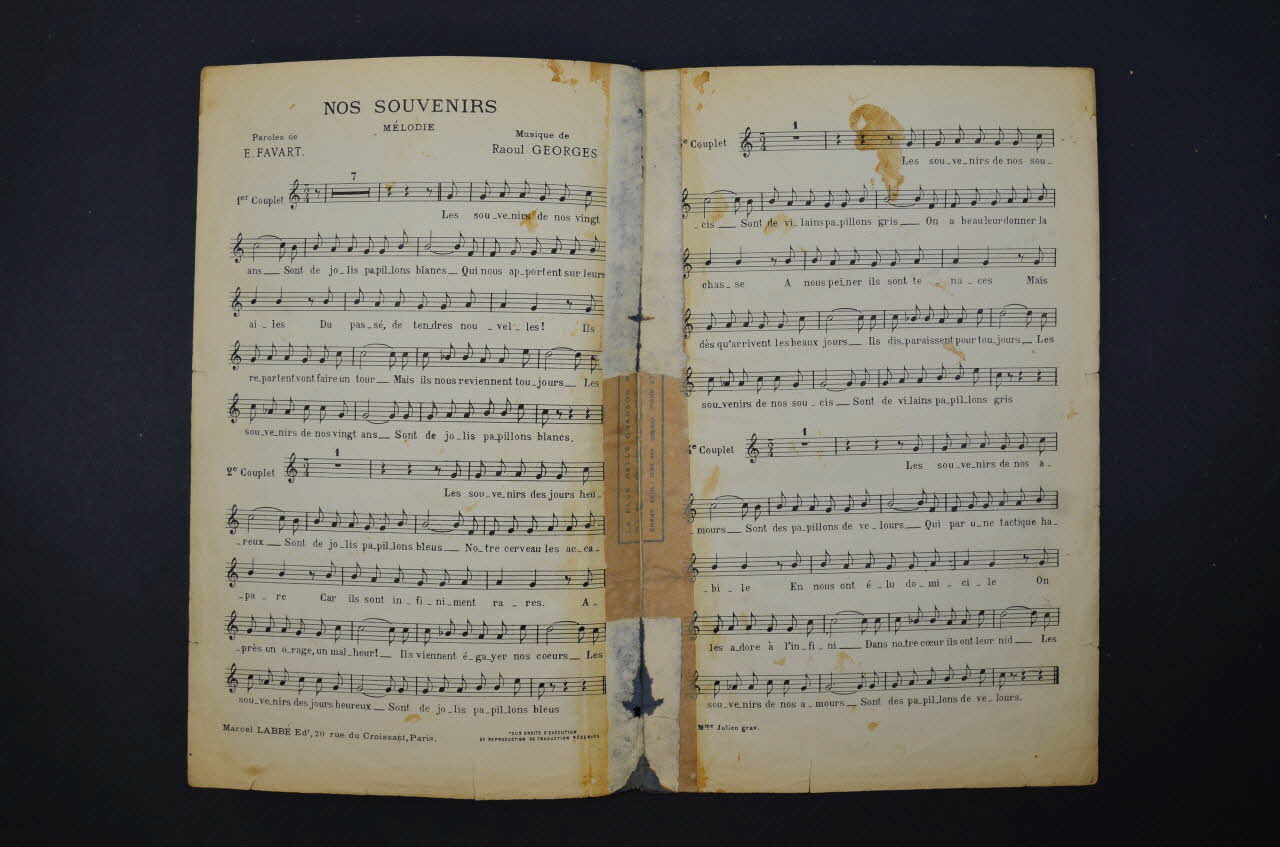 NOS SOUVENIRS
MÉLODIE
Paroles de
E. FAVART.
Musique de
Raoul GEORGES
7
1er Couplet
Les sou_ve_nirs de nos vingt
ans__ Sont de jo_lis pa_pil_lons blancs__ Qui nous ap_portent sur leurs
ai_les Du pas_sé, de ten_dres nou_vel_les! Ils
re_partent vont faire un tour__ Mais ils nous reviennent tou_jours__ Les
sou_ve_nirs de nos vingt ans__ Sont de jo_lis pa_pillons blancs.
1
2e Couplet
Les sou_ve_nirs des jours heu_
_reux__ Sont de jo_lis pa_pil_lons bleus__ No_tre cerveau les ac_ca_
_pa_re Car ils sont in_fi_ni_ment ra_res. A_
_près un o_rage, un mal_heur! __ Ils viennent é_ga_yer nos coeurs__ Les
sou_ve_nirs des jours heureux__ Sont de jo_lis pa_pil_lons bleus
Marcel LABBÉ Edr, 20 rue du Croissant, Paris.
TOUS DROITS D'EXÉCUTION
DE REPRODUCTION DE TRADUCTION RÉSERVÉS
1
e Couplet
Les sou_ve_nirs de nos sou_
_cis__ Sont de vi_lains pa_pillons gris__ On a beau leur donner la
chas_se A nous pei_ner ils sont te_na_ces Mais
dès qu'arrivent les beaux jours__ Ils dis_paraissent pour tou_jours__ Les
sou_venirs de nos sou_cis__ Sont de vi_lains pa_pil_lons gris
1
e Couplet
Les sou_ve_nirs de nos a_
_mours__ Sont des pa_pillons de ve_lours__ Qui par u_ne tactique ha_
_bi_le En nous ont é_lu do_mi_ci_le On
les a_dore à l'in_fi_ni__ Dans no_tre cœur ils ont leur nid__ Les
sou_ve_nirs de nos a_mours__ Sont des pa_pil_lons de ve_lours.
Mme Julien grav.